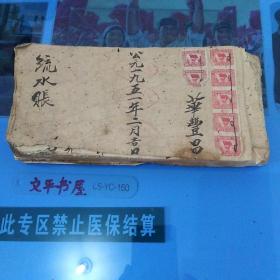 華豐昌
公元一九五一年二月吉日
流水賬
文平书屋 LS-YC-160
此专区禁止医保结算